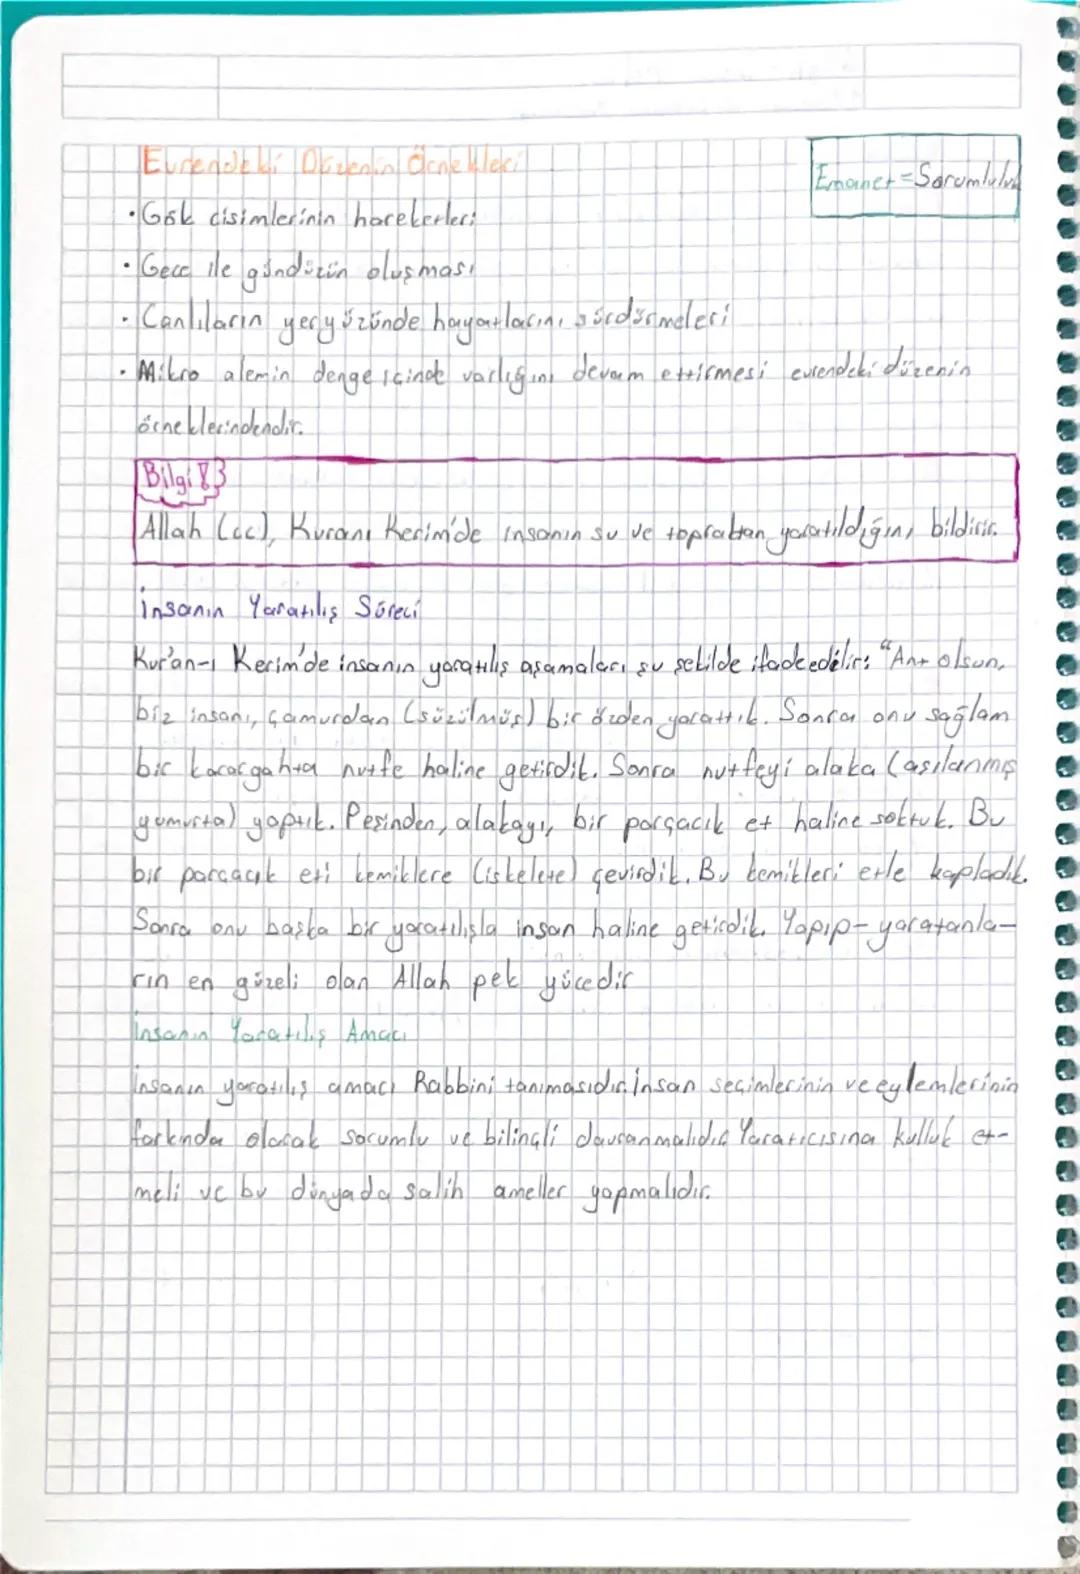 Evrendeki Düzenin Örnekleri
Emanet = Sorumluluk
• Gök cisimlerinin hareketleri
• Gece ile gündüzün oluşması
• Canlıların yeryüzünde hayatlarını sürdürmeleri
• Mikro alemin denge içinde varlığını devam ettirmesi evrendeki düzenin
örneklerindendir.
Bilgi!
Allah (cc), Kuranı Kerim'de insanın su ve topraktan yaratıldığını bildirir.
İnsanın Yaratılış Süreci
Kur'an-ı Kerim'de insanın yaratılış aşamaları şu şekilde ifade edilir: "Ant olsun,
biz insanı, çamurdan (süzülmüş) bir özden yarattık. Sonra onu sağlam
bir karargahta nutfe haline getirdik. Sonra nutfeyi alaka (aşılanmış
yumurta) yaptık. Peşinden, alakayı, bir parçacık et haline soktuk. Bu
bir parçacık eti kemiklere (iskelete) çevirdik. Bu kemikleri etle kapladık.
Sonra onu başka bir yaratılışla insan haline getirdik. Yapıp-yaratanla-
rın en güzeli olan Allah pek yücedir
İnsanın Yaratılış Amacı
İnsanın yaratılış amacı Rabbini tanımasıdır. İnsan seçimlerinin ve eylemlerinin
farkında olarak sorumlu ve bilinçli davranmalıdır. Yaratıcısına kulluk et-
meli ve bu dünyada salih ameller yapmalıdır.